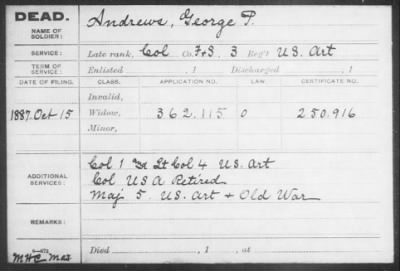 DEAD.
NAME OF SOLDIER:
Andrews, George P.
SERVICE:
Late rank, Col Co. F&S, 3 Reg't U.S. Art
TERM OF SERVICE:
Enlisted , 1 Discharged , 1
DATE OF FILING. CLASS. APPLICATION NO. LAW. CERTIFICATE NO.
Invalid,
1887. Oct 15 Widow, 362.115 0 250.916
Minor,
ADDITIONAL SERVICES:
Col 1 & Lt Col 4 U.S. Art
Col USA Retired
Maj 5 U.S. Art + Old War
REMARKS:
Died , 1 , at
MHC Mas